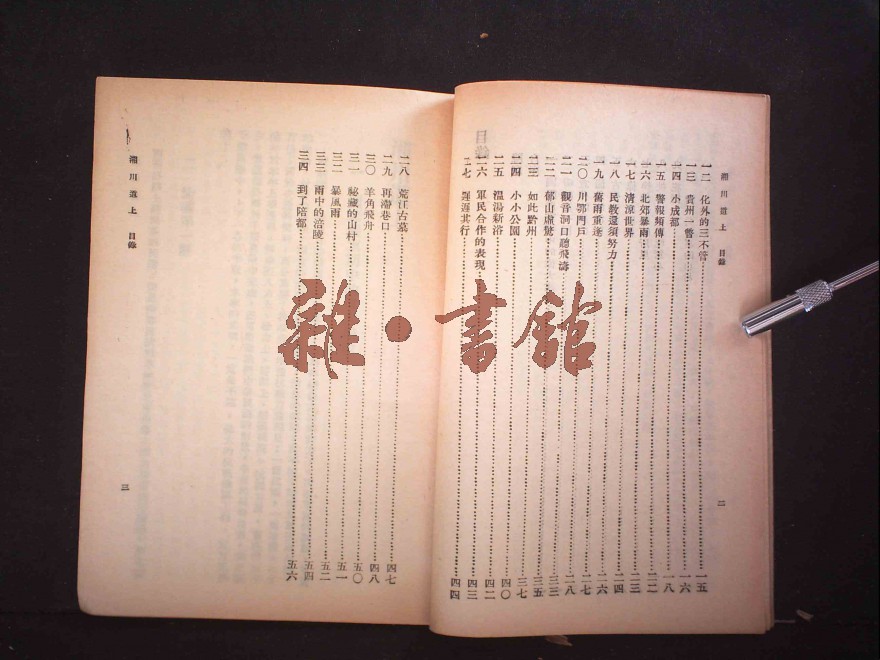 湘川道上 目錄
一二 化外的三不管 一五
一三 貴州一瞥 一六
一四 小成都 一八
一五 警報頻傳
一六 北郊暴雨 二二
一七 清涼世界 二三
一八 民教還須努力 二四
一九 舊雨重逢 二六
二〇 川鄂門戶 二七
二一 觀音洞口聽飛濤 二八
二二 郁山虛驚 三三
二三 如此黔州 三五
二四 小小公園 三七
二五 溫湯新浴 四〇
二六 軍民合作的表現 四二
二七 遲遲其行 四三
四四
二
目錄
二八 荒江古墓 四七
二九 再滯巷口 四八
三〇 羊角飛舟 五〇
三一 祕藏的山村 五一
三二 暴風雨 五二
三三 雨中的涪陵 五四
三四 到了陪都 五六
湘川道上 目錄
三
雜·書館